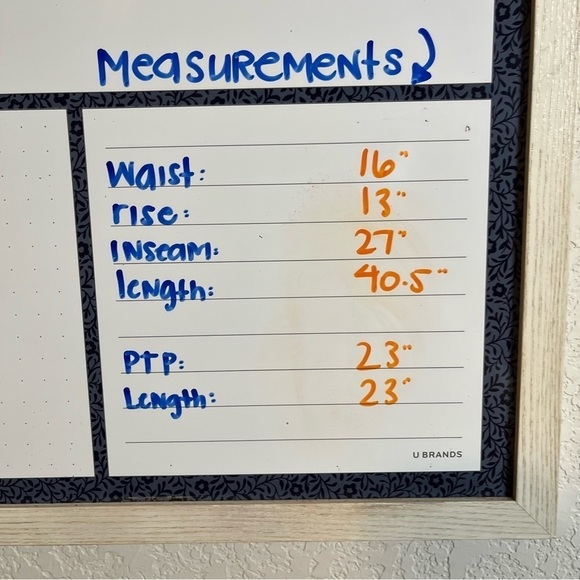 Measurements
Waist: 16"
rise: 13"
Inseam: 27"
length: 40.5"
PTP: 23"
Length: 23"
U BRANDS